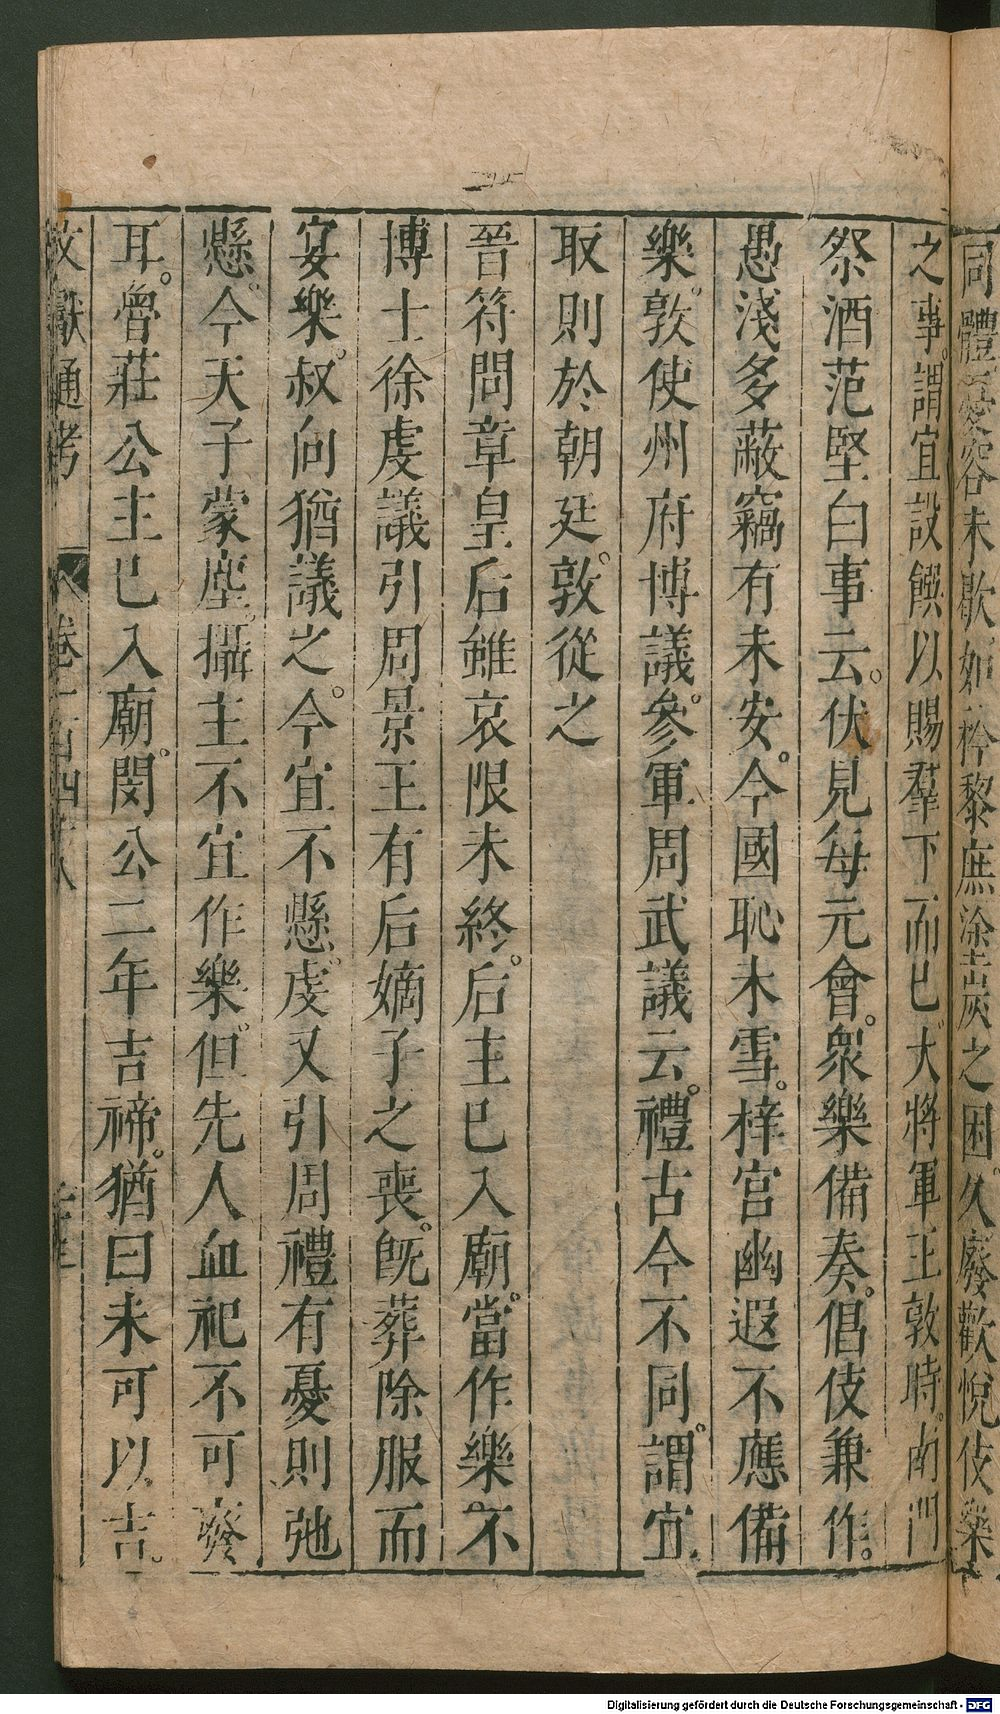 同體愛容未歇如矜黎庶塗炭之困久廢歡悅伎樂
之事謂宜設饌以賜羣下而已大將軍王敦時南門
祭酒范堅白事云伏見每元會衆樂備奏倡伎兼作
愚淺多蔽竊有未安今國恥未雪梓宮幽遐不應備
樂敦使州府博議參軍周武議云禮古今不同謂宜
取則於朝廷敦從之
晉符問章皇后雖哀限未終后主已入廟當作樂不
博士徐虔議引周景王有后嫡子之喪旣葬除服而
宴樂叔向猶議之今宜不懸虔又引周禮有憂則弛
懸今天子蒙塵攝主不宜作樂但先人血祀不可廢
耳魯莊公主已入廟閔公二年吉禘猶曰未可以吉
文獻通考 卷一百四八
Digitalisierung gefördert durch die Deutsche Forschungsgemeinschaft - DFG